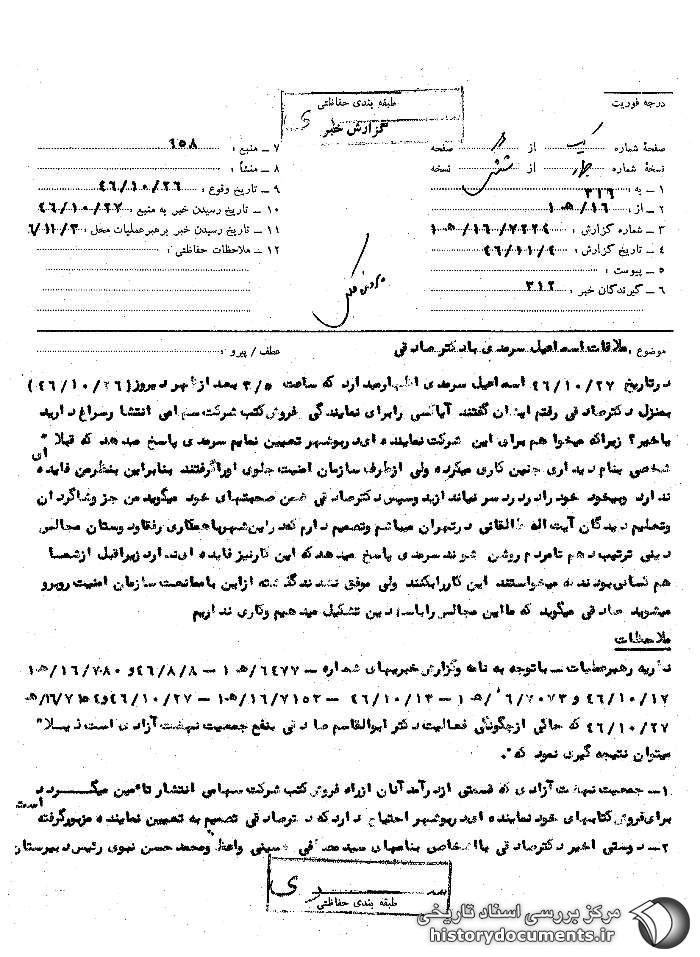 درجه فوریت
طبقه بندی حفاظتی
سری
گزارش خبر
صفحهٔ شماره یک از دو صفحه
نسخهٔ شماره چهار از شش نسخه
۱ ــ به : ۳۱۶
۲ ــ از : ۱۶/ه۱
۳ ــ شماره گزارش : ۷۲۲۴/ه۱۶/۱
۴ ــ تاریخ گزارش : ۴۶/۱۱/۴
۵ ــ پیوست :
۶ ــ گیرندگان خبر : ۳۱۲
۷ ــ منبع : ۱۵۸
۸ ــ منشأ :
۹ ــ تاریخ وقوع : ۴۶/۱۰/۲۶
۱۰ ــ تاریخ رسیدن خبر به منبع : ۴۶/۱۰/۲۷
۱۱ ــ تاریخ رسیدن خبر برهبرعملیات محل : ۶/۱۱/۳
۱۲ ــ ملاحظات حفاظتی :
موضوع : ملاقات اسماعیل سرمدی با دکتر صادقی
عطف / پیرو :
درتاریخ ۴۶/۱۰/۲۷ اسماعیل سرمدی اظهارمیدارد که ساعت ۳/۵ بعد ازظهر دیروز(۴۶/۱۰/۲۶)
بمنزل دکترصادقی رفتم ایشان گفتند آیاکسی رابرای نمایندگی فروش کتب شرکت سهامی انتشار سراغ دارید
یاخیر؟ زیراکه میخواهم برای این شرکت نماینده ای دربوشهر تعیین نمایم سرمدی پاسخ میدهد که قبلا"
شخصی بنام دیداری چنین کاری میکرده ولی ازطرف سازمان امنیت جلوی اوراگرفتند بنابراین بنظرمن فایده ای
ندارد وبیخود خودرادردردسر نیاندازید وسپس دکترصادقی ضمن صحبتهای خود میگوید من جزو شاگردان
وتعلیم دیدگان آیت اله طالقانی درتهران میباشم وتصمیم دارم که دراین شهرباهمکاری رفقاودوستان مجالس
دینی ترتیب دهم تامردم روشن شوند سرمدی پاسخ میدهد که این کارنیز فایده ای ندارد زیراقبل ازشما
هم کسانی بودند که میخواستند این کاررابکنند ولی موفق نشدند گذشته ازاین باممانعت سازمان امنیت روبرو
میشوید صادقی میگوید که مااین مجالس رابااسم دین تشکیل میدهیم وکاری نداریم
ملاحظات
نظریه رهبرعملیات ــ باتوجه به نامه وگزارش خبریهای شماره ــ ۶۴۷۷/ه۱ ــ ۴۶/۸/۸ و ۷۰۸۰/ه۱۶/۱
۴۶/۱۰/۱۷ و ۷۰۷۳/ه۱۶/۱ ــ ۴۶/۱۰/۱۳ ــ ۷۱۵۲/ه۱۶/۱ ــ ۴۶/۱۰/۲۷ و
۴۶/۱۰/۲۷ که حاکی ازچگونگی فعالیت دکتر ابوالقاسم صادقی بنفع جمعیت نهضت آزادی است ذیلا"
میتوان نتیجه گیری نمود که".
۱ــ جمعیت نهضت آزادی که قسمتی ازدرآمدآنان ازراه فروش کتب شرکت سهامی انتشار تامین میگردد
برای فروش کتابهای خود نماینده ای دربوشهر احتیاج دارد که دکترصادقی تصمیم به تعیین نماینده مزبورگرفته است
۲ــ دوستی اخیر دکترصادقی بااشخاص بنامهای سید حسینی واعظ ومحمد حسن نبوی رئیس دبیرستان
سری
طبقه بندی حفاظتی
مرکز بررسی اسناد تاریخی
historydocuments.ir